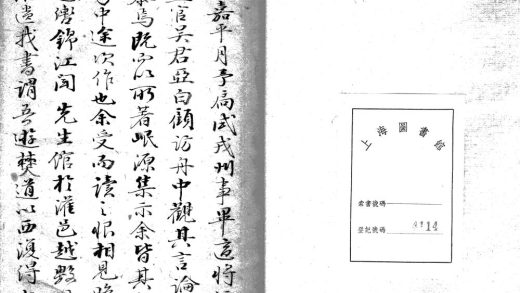 上海圖書館
索書號碼
登記號碼
嘉平月予試戎州事畢將
官吳君亞白顧訪舟中觀其言論
焉既以所著岷源集示余皆其
中途次作也余受而讀之恨相見晚
錦江聞先生館於灌邑越數
遺我書謂吾遊僰道以西復得